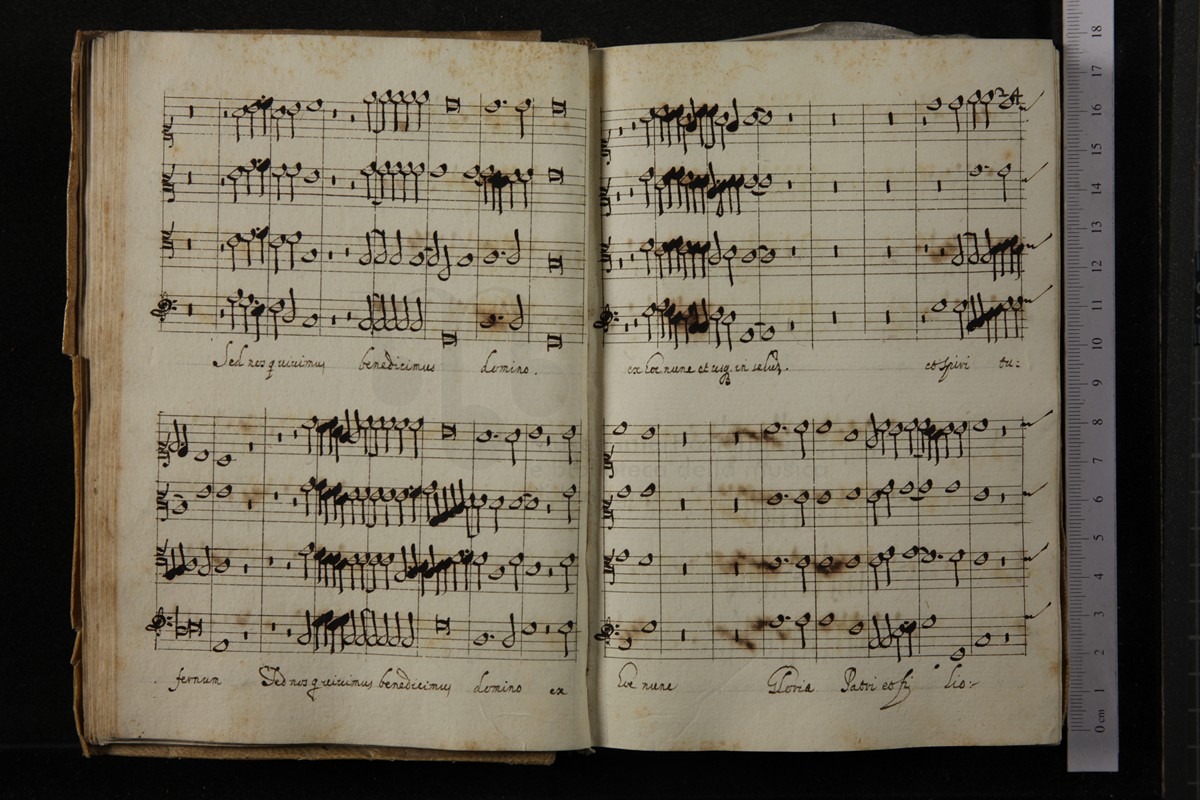 24
Sed nos q uiuimus benedicimus domino .
ex hoc nunc et usq. in
et spiri tu:
fernum Sed nos q uiuimus benedicimus domino ex
hoc nunc Gloria Patri et fi lio:
e biblioteca della musica
0 cm 1 2 3 4 5 6 7 8 9 10 11 12 13 14 15 16 17 18